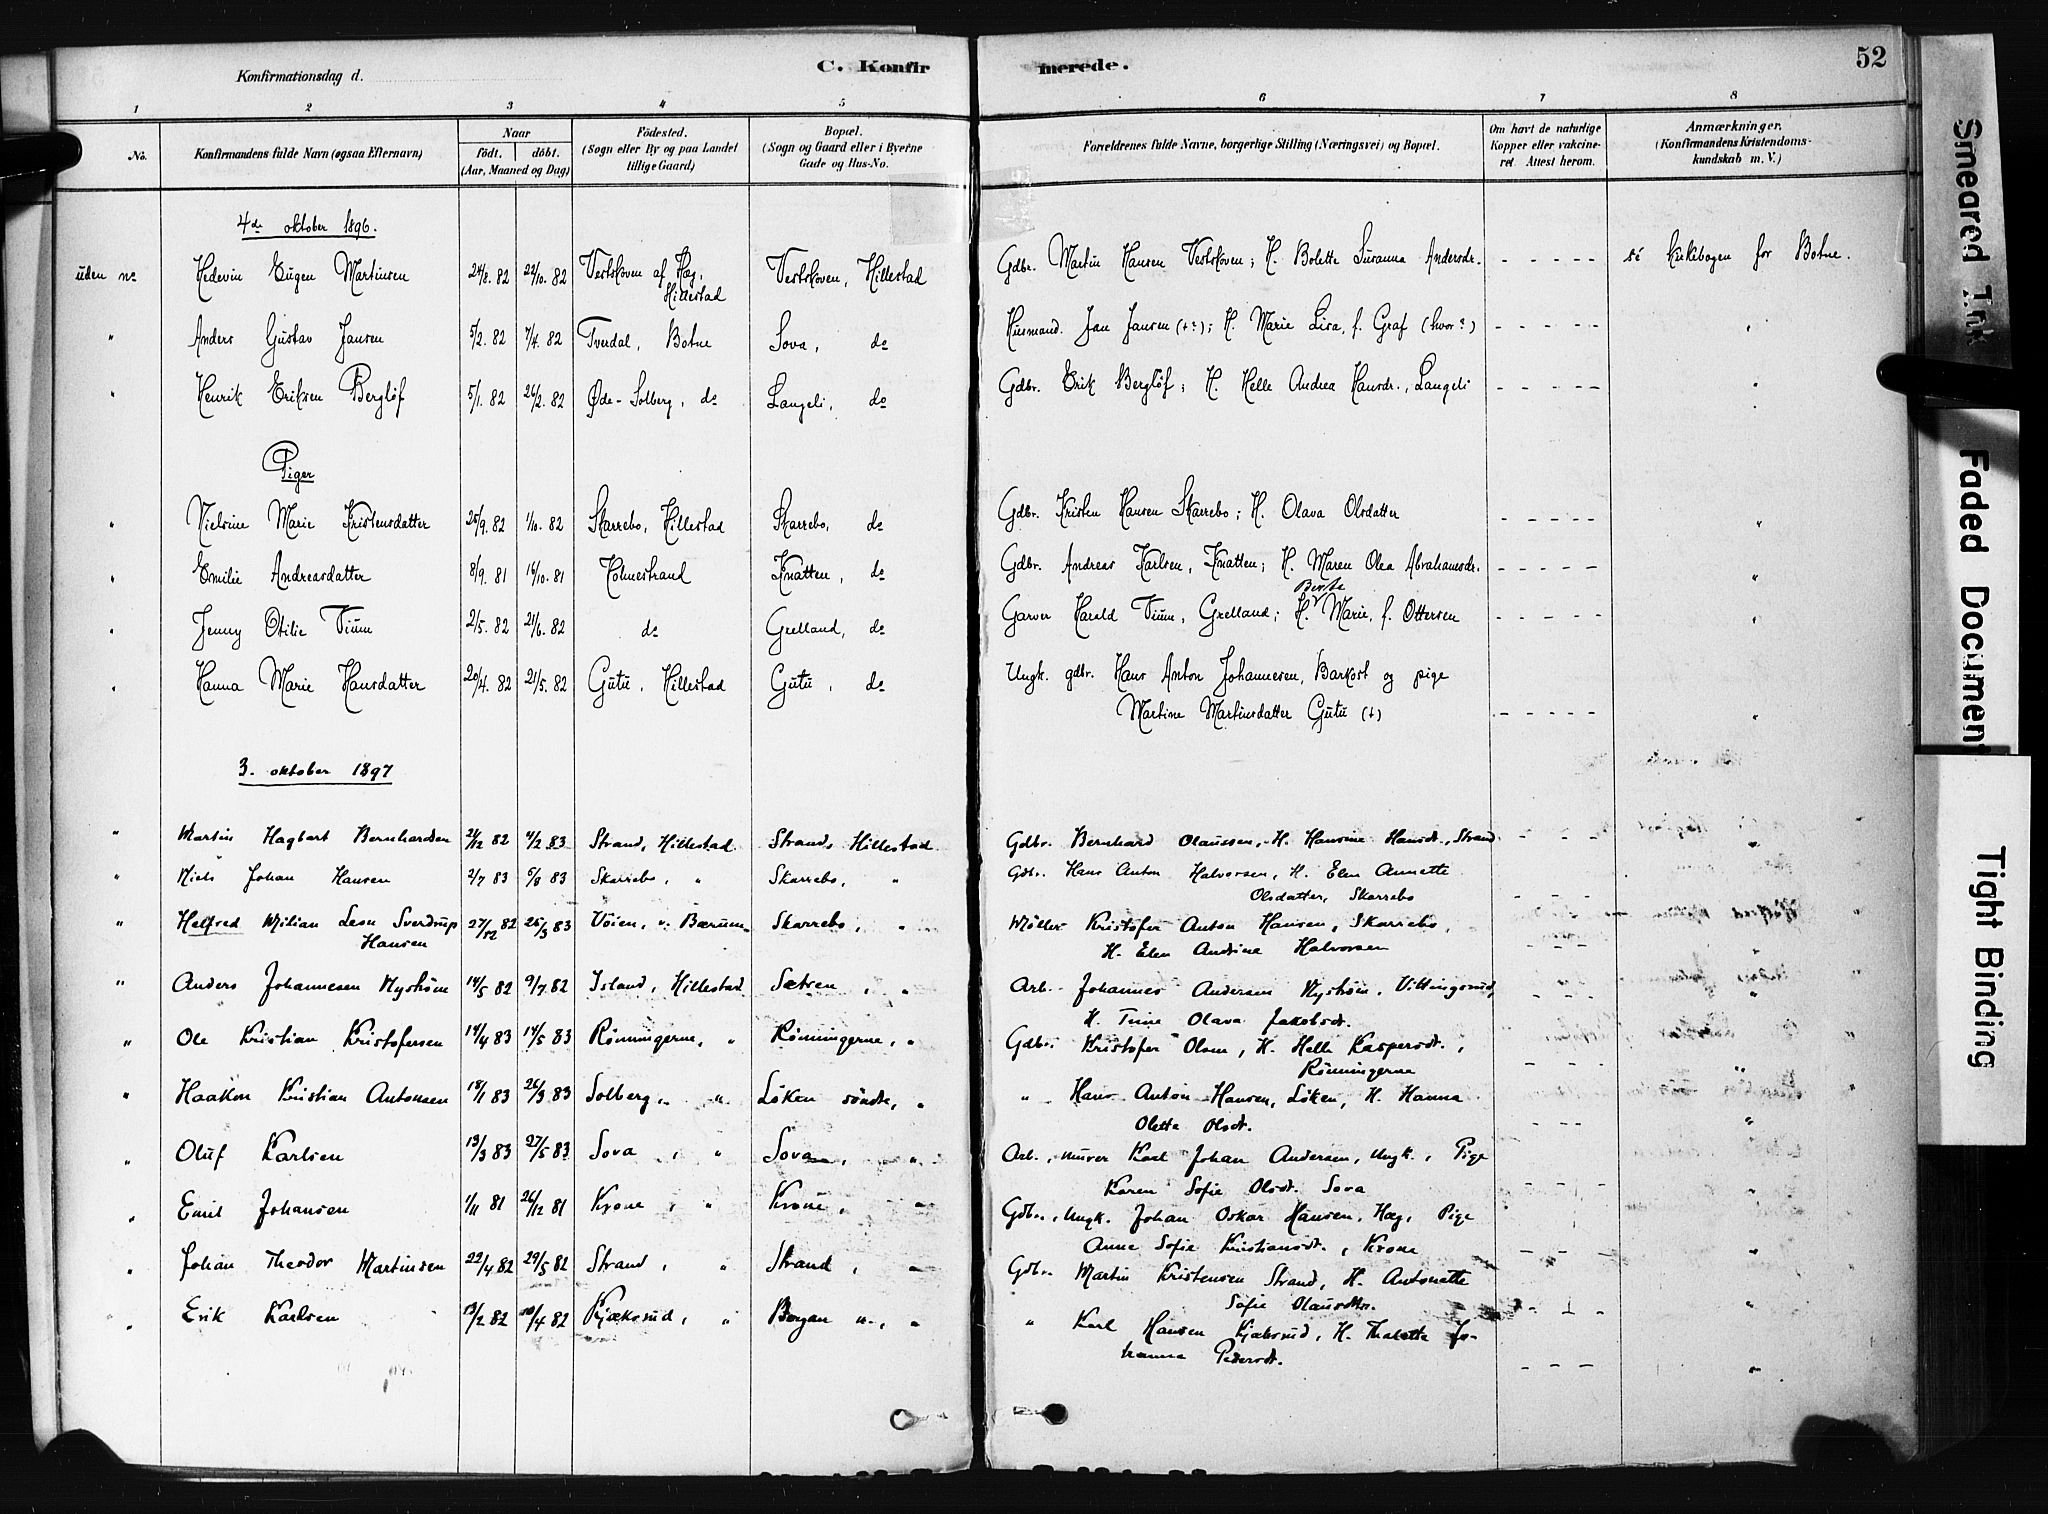 Konfirmationsdag d.
C. Konfirmerede.
52
1 2 3 4 5 6 7 8
No.
Konfirmandens fulde Navn (ogsaa Efternavn)
Naar
födt. döbt.
(Aar, Maaned og Dag)
Födested.
(Sogn eller By og paa Landet
tillige Gaard)
Bopæl.
(Sogn og Gaard eller i Byerne
Gade og Hus-No.
Forældrenes fulde Navne, borgerlige Stilling (Næringsvei) og Bopæl.
Om havt de naturlige
Kopper eller vakcine-
ret Attest herom.
Anmærkninger.
(Konfirmandens Kristendoms-
kundskab m. V.)
4de oktober 1896.
uden no Hedevin Eugen Martinsen 24/8. 82 22/10. 82 Vestskoven af Hæg, Hillestad Vestskoven, Hillestad Gdbr. Martin Hansen Vestskoven; H. Bolette Susanna Andersdr. - - - - - sé kirkebogen for Botne.
" Anders Gustav Jansen 5/2. 82 7/4. 82 Tverdal, Botne Sova, do Husmand. Jan Jansen (+?); H. Marie Lisa, f. Graf (hvor?) - - - - - "
" Henrik Eriksen Berglöf 5/1. 82 26/2. 82 Øde-Solberg, do Langeli, do Gdbr. Erik Berglöf; H. Helle Andrea Hansdr., Langeli - - - - - "
Piger
" Nielsine Marie Kristensdatter 25/9. 82 1/10. 82 Skarrebo, Hillestad Skarrebo, do Gdbr. Kristen Hansen Skarrebo; H. Olava Olsdatter - - - - - "
" Emilie Andreasdatter 8/9. 81 16/10. 81 Holmestrand Knatten, do Gdbr. Andreas Karlsen, Knatten; H. Maren Olea Abrahamsdr. - - - - - "
" Jenny Otilie Tium 2/5. 82 21/6. 82 do Grelland, do Garver Harald Tium, Grelland; H. Marie, f. Ottersen - - - - - "
" Hanna Marie Hansdatter 20/4. 82 21/5. 82 Gutu, Hillestad Gutu, do Ungk. gdbr. Hans Anton Johannesen, Barkost og pige
Martine Martinsdatter Gutu (+) - - - - - "
3. oktober 1897
" Martin Hagbart Bernhardsen 2/12 82 4/2 83 Strand, Hillestad Strand, Hillestad Gdbr. Bernhard Olaussen, H. Hansine Hansdt., Strand - - - "
" Niels Johan Hansen 2/7 83 5/8 83 Skarrebo, " Skarrebo, " Gdbr. Hans Anton Halvorsen, H. Elen Annette
Olsdatter, Skarrebo - - -
" Helfred Milian Leon Sverdrup
Hansen 27/12 82 25/3 83 Vöien, v. Bærum Skarrebo, " Möller Kristofer Anton Hansen, Skarrebo,
H. Elen Andrine Halvorsen - - - "
" Anders Johannesen Myhsöm 14/5 82 9/7 82 Island, Hillestad Sætren, " Arb. Johannes Andersen Myhsöm, Vittingsrud,
H. Trine Olava Jakobsdt. - - - "
" Ole Kristian Kristofersen 14/4 83 14/5 83 Rönningerne, " Rönningerne, " Gdbr. Kristofer Olsen, H. Helle Kaspersdt.,
Rönningerne - - - "
" Haakon Kristian Antonsen 18/1 83 26/3 83 Solberg, " Löken söndre, " " Hans Anton Hansen, Löken, H. Hanna
Olette Olsdt. - - - "
" Oluf Karlsen 13/3 83 27/5 83 Sova, " Sova, " Arb., murer Karl Johan Andersen, Ungk., Pige
Karen Sofie Olsdt. Sova - - - "
" Emil Johansen 1/11 81 26/12 81 Krone, " Krone, " Gdbr., Ungk. Johan Oskar Hansen, Hæg, Pige
Anne Sofie Kristiansdt., Krone - - - "
" Johan Theodor Martinsen 22/4 82 29/5 82 Strand, " Strand, " Gdbr. Martin Kristensen Strand, H. Antonette
Sofie Olausdtr. - - - "
" Erik Karlsen 13/2 82 10/4 82 Kjæksrud, " Bergan n., " " Karl Hansen Kjæksrud, H. Thalette Jo-
hanna Pedersdt. - - - "
Smeared Ink
Faded Document
Tight Binding